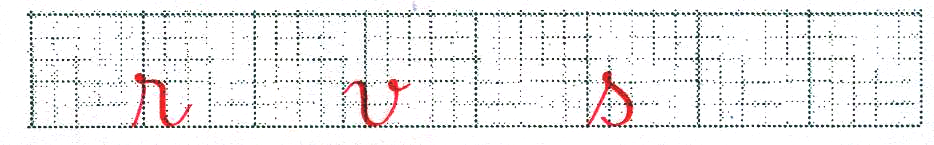 r v s